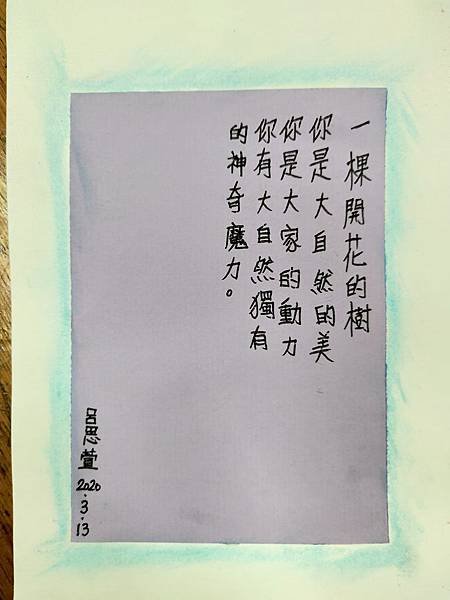 一棵開花的樹
你是大自然的美
你是大家的動力
你有大自然獨有
的神奇魔力。
呂思萱
2020.3.13